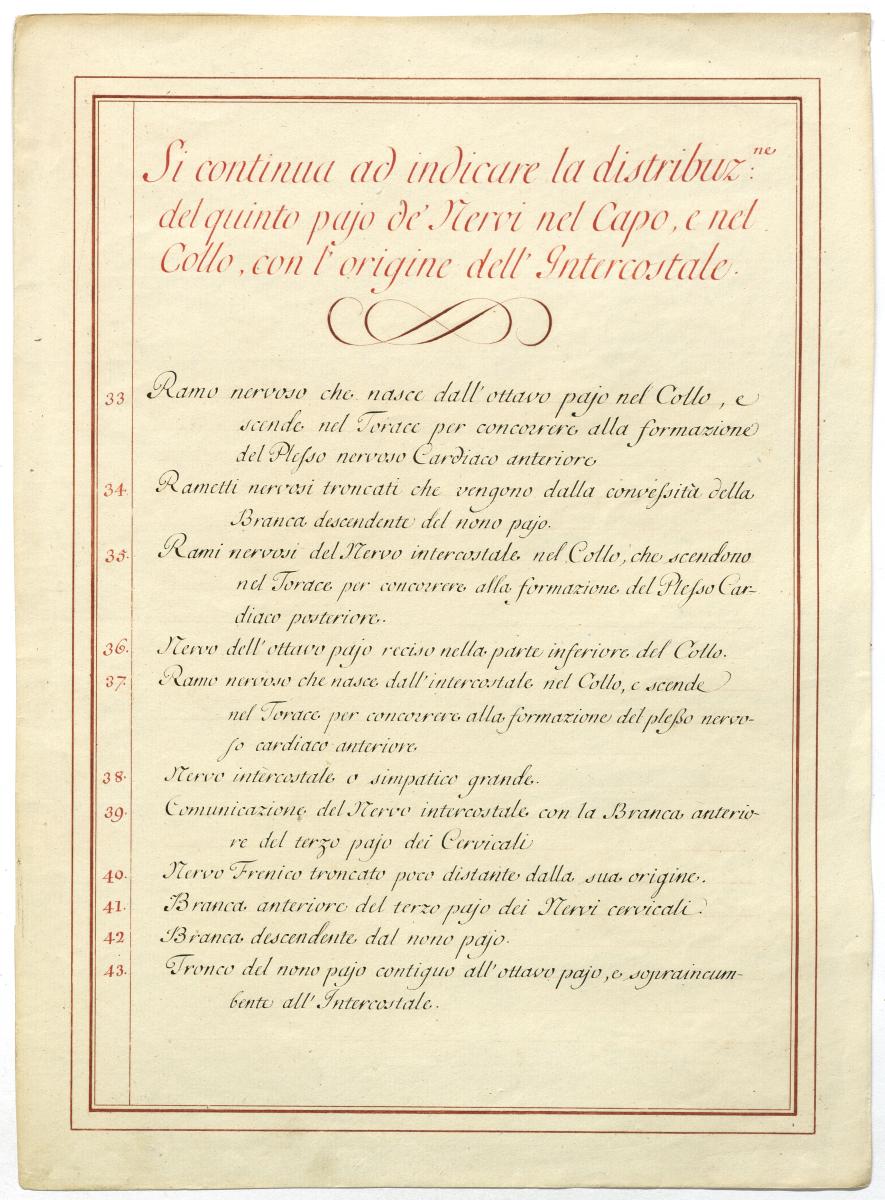 Si continua ad indicare la distribuz.ne
del quinto pajo de' Nervi nel Capo, e nel
Collo, con l'origine dell'Intercostale.
33 Ramo nervoso che nasce dall'ottavo pajo nel Collo, e
scende nel Torace per concorrere alla formazione
del Plesso nervoso Cardiaco anteriore
34. Rametti nervosi troncati che vengono dalla convessità della
Branca descendente del nono pajo.
35. Rami nervosi del Nervo intercostale nel Collo, che scendono
nel Torace per concorrere alla formazione del Plesso Car-
diaco posteriore.
36. Nervo dell'ottavo pajo reciso nella parte inferiore del Collo.
37. Ramo nervoso che nasce dall'intercostale nel Collo, e scende
nel Torace per concorrere alla formazione del plesso nervo-
so cardiaco anteriore
38. Nervo intercostale o simpatico grande.
39. Comunicazione del Nervo intercostale con la Branca anterio-
re del terzo pajo dei Cervicali
40. Nervo Frenico troncato poco distante dalla sua origine.
41. Branca anteriore del terzo pajo dei Nervi cervicali.
42 Branca descendente dal nono pajo.
43. Tronco del nono pajo contiguo all'ottavo pajo, e sopraincum-
bente all'Intercostale.